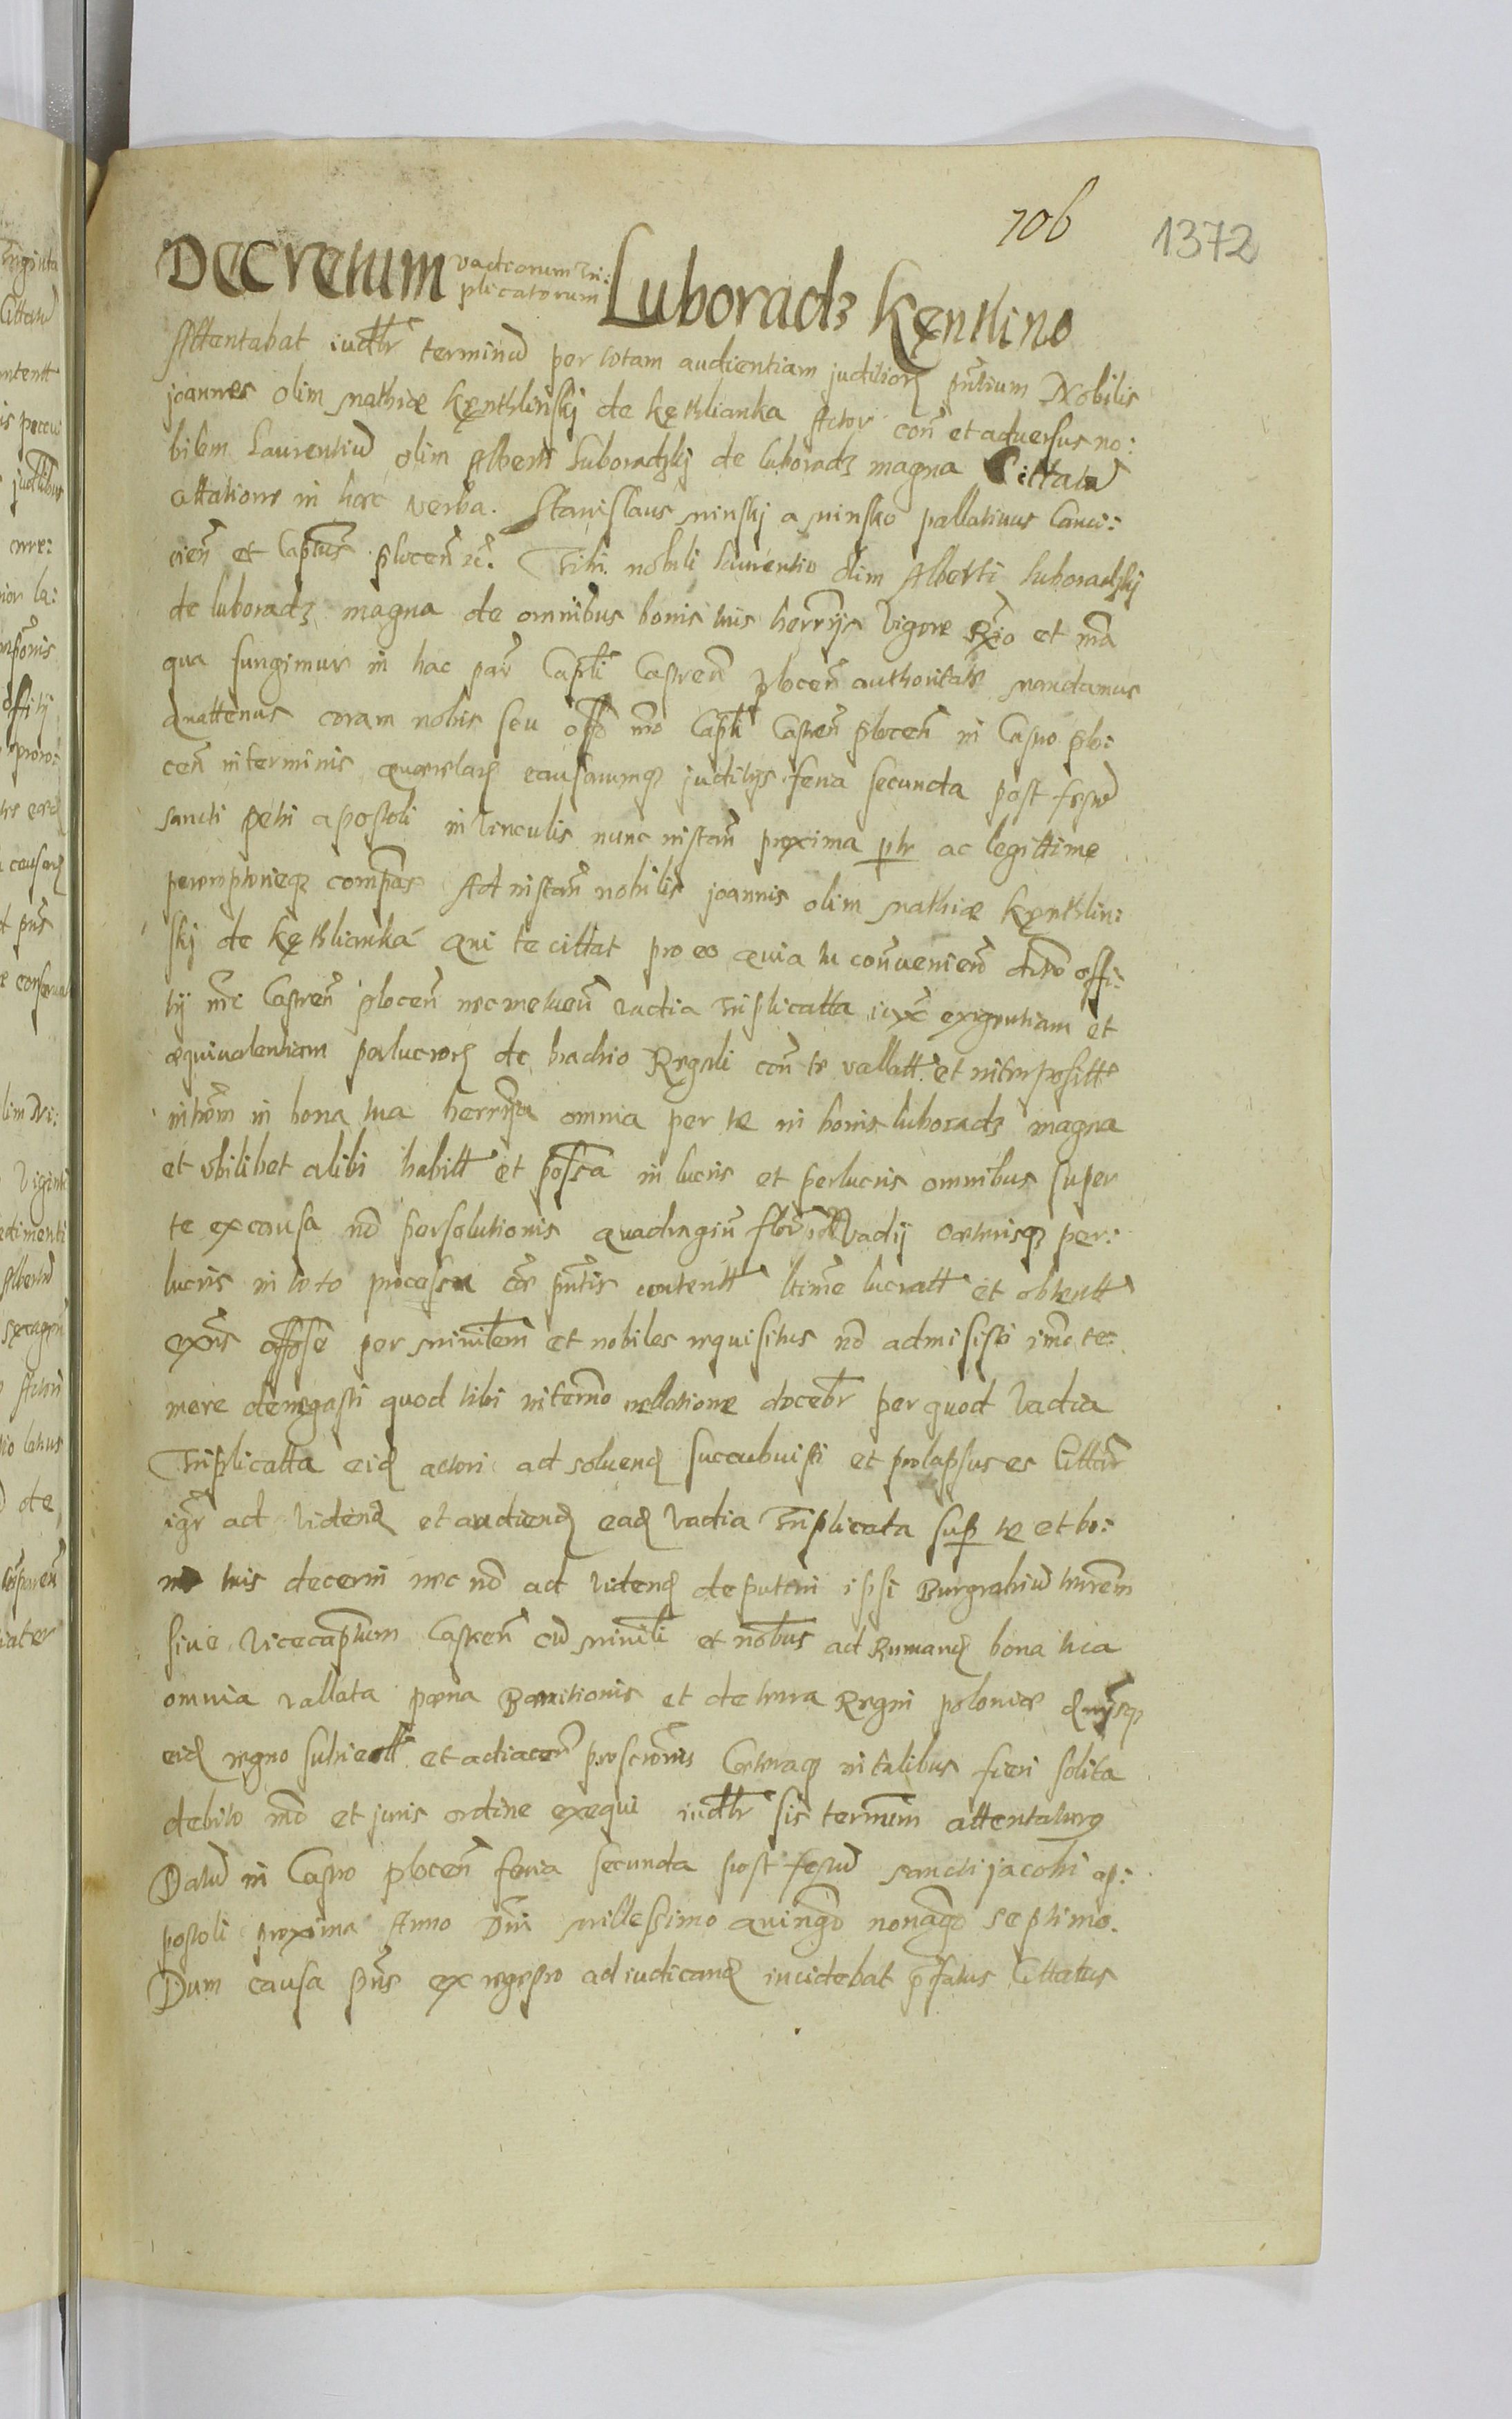 706
1372
Decretum vadiorum tri:
plicatorum Luboradz Kęntlino
Attentabat iudlr terminū per totam audientiam juditiorz pñtium Nobilis
joannes olim Mathiæ Kęnthlinskj de Kęthlianka Actor coñ et aduersus no:
bilem Laurentiū olim Alberti Luboradzkj de Luboradz magna Cittatū
cittatione in hæc verba. Stanislaus Minskj a Minsko pallatinus Lanci:
cieñ et Captũs ploceñ zc. Tibi nobili Laurentio olim Alberti Luboradzkj
de luboradz magna de omnibus bonis tuis herrijs Vigore Rxio et mã
qua fungimur in hac par Capłi Castreñ ploceñ authoritate mandamus
Quattenus coram nobis seu offo mro Capłi Castreñ ploceñ in Castro plo:
ceñ in terminis quærelarz causarumqz juditijs feria secunda post festū
sancti petri apostoli in vinculis nunc instañ proxima ptr ac legittime
peremptorieqz compas Ad instañ nobilis joannis olim Mathiæ Kęnthlin:
skj de Kęthlianka Qui te cittat pro eo quia tu conueniend dicto offi:
tij mri Castreñ ploceñ nec metuen vadia triplicatta iux exigentiam et
æquiualentiam perlucrorz de brachio Regali coñ te vallatt et interpositt
introm in bona tua herrija omnia per te in bonis luboradz magna
et vbilibet alibi habitt et possa in lucris et perlucris omnibus super
te ex causa nō persolutionis quadragin flor Vadij cæterisqz per:
lucris in toto processu cæ pntis contentt ltime lucratt et obtentt
exñs offose per Minilem et nobiles requisitus nō admisisti imo te:
mere denegasti quod tibi in termo rellatione docebr per quod Vadia
Triplicatta eidz actori ad soluendz succubuisti et prolapsus es Cittar
igr ad Videndz et audiendz eadz Vadia Triplicata sup te et bo:
nis tuis decerni nec nō ad Videndz deputari ipsi Burgrabiū trrem
siue Vicecaptum Castreñ cū Minili et nobus ad Rumandz bona tua
omnia vallata pæna Bannitionis et de terra Regni poloniæ
eidz regno subiectt et adiaceñ proscronis Cæteraqz in talibus fieri solita
debito mō et juris ordine exequi iudlr sis termum attentaturg
Datū in Castro ploceñ feria secunda post festū sancti jacobi ap:
postoli proxima Anno Dni Millessimo quingō nonagō septimo.
Dum causa pñs ex regro adiudicandz incidebat pfatus Cittatus